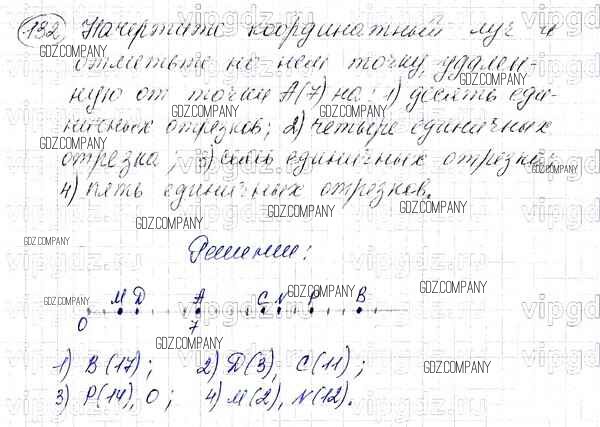 132. Начертите координатный луч и
отметьте на нем точку, удален-
ную от точки А(7) на: 1) десять еди-
ничных отрезков; 2) четыре единичных
отрезка; 3) семь единичных отрезков;
4) пять единичных отрезков.
Решение:
М Д А С N Р В
0 7
1) В(17); 2) Д(3), С(11);
3) Р(14), О; 4) М(2), N(12).
GDZ.COMPANY
vipgdz